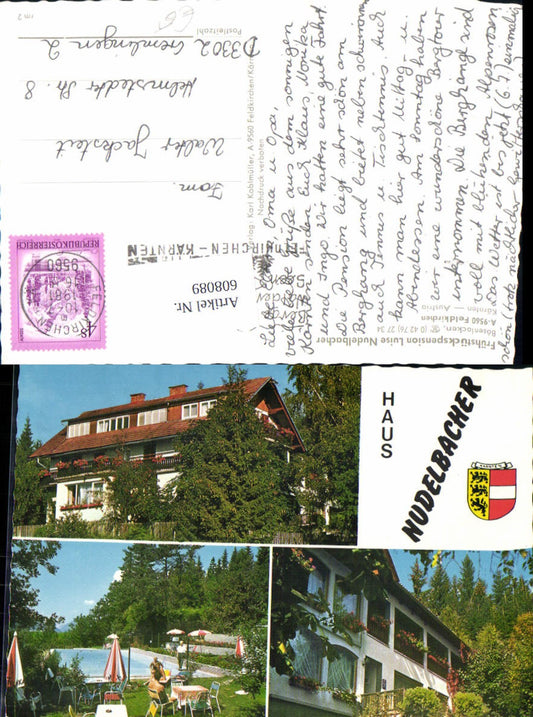 Frühstückspension Luise Nudelbacher
Bötenlocken, ☏ (0 42 76) 27 34
A-9560 Feldkirchen
Kärnten — Austria
Liebe Oma u Opa,
viele liebe Grüße aus dem sonnigen
Kärnten senden Euch Klaus, Monika
und Ingo. Wir hatten eine gute Fahrt.
Die Pension liegt sehr schön am
Berghang und bietet neben schwimmen
auch Tennis u. Tischtennis. Auch
kann man hier gut Mittag- u.
Abendessen. Am Sonntag haben
wir eine wunderschöne Bergtour
unternommen. Die Berghänge sind
voll mit blühenden Alpenrosen
Das Wetter ist bis jetzt (6.7) einmalig
schön trotz nächtlicher
Verlag: Karl Koblmüller, A-9560 Feldkirchen/Kärnten
Nachdruck verboten
FELDKIRCHEN – KÄRNTEN
Seen
REPUBLIK ÖSTERREICH
S 4
9560
1981
FELDKIRCHEN
Fam.
Walter Jacksteit
Helmstedter Str. 8
D 3302 Cremlingen 2
Postleitzahl
rm 2
Artikel Nr.
608089
HAUS
NUDELBACHER